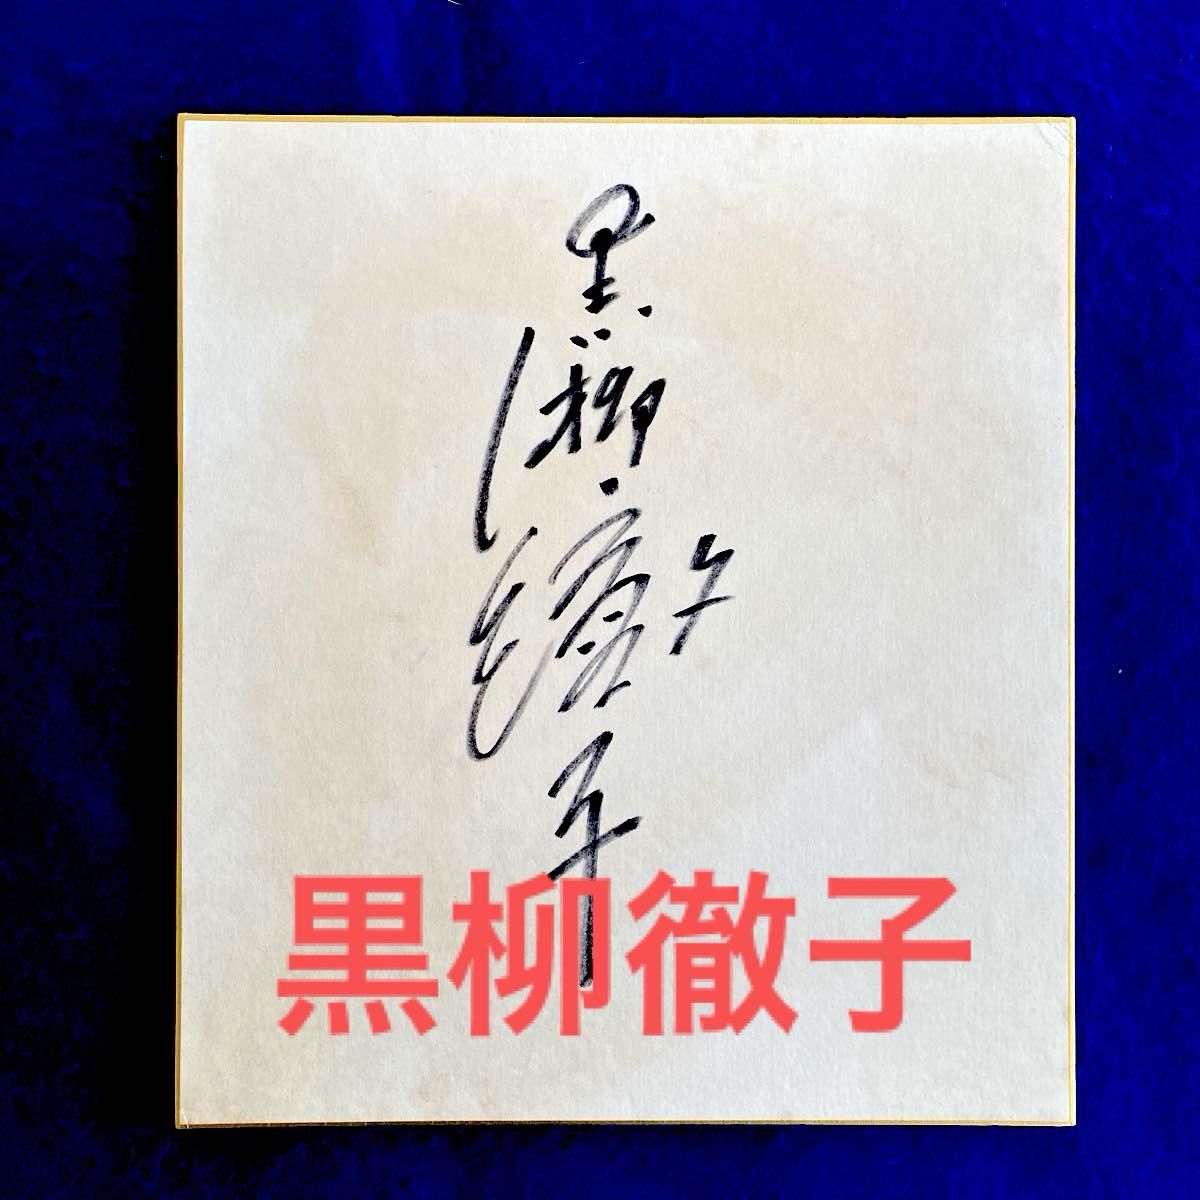 黒柳徹子
黒柳徹子